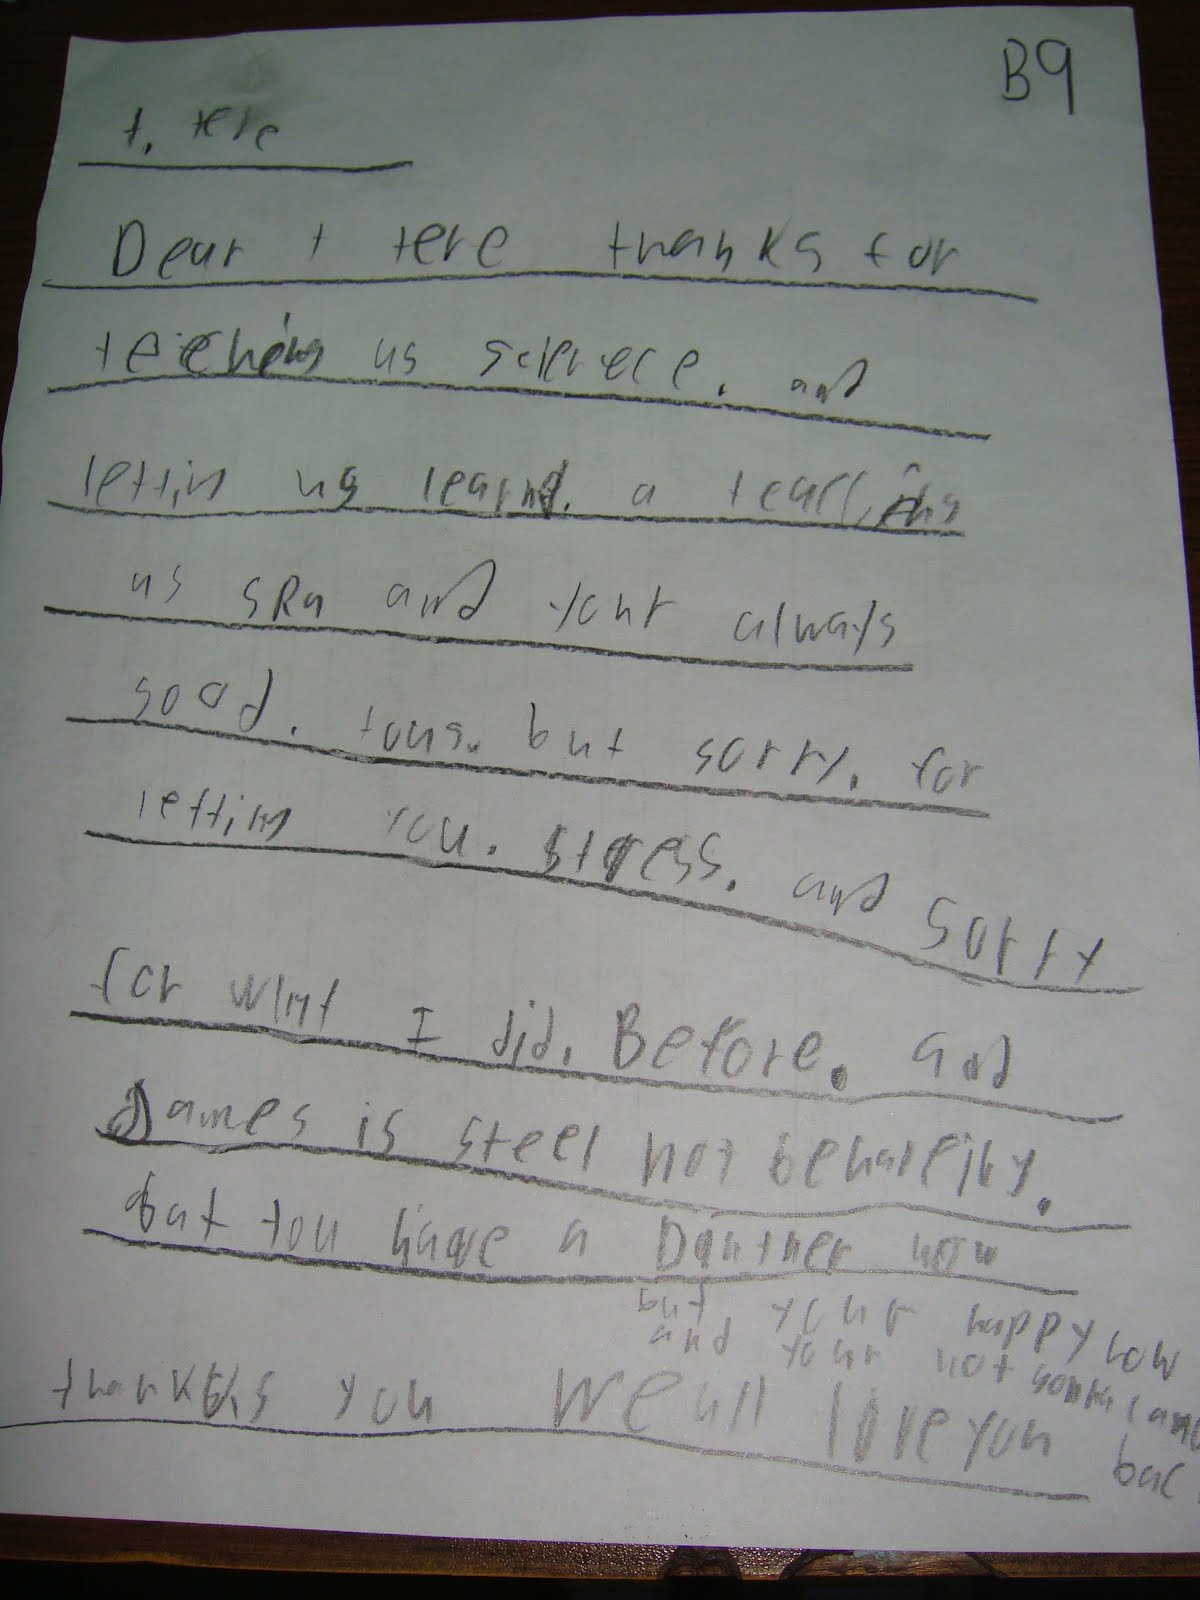 B9
t. tere
Dear t tere thanks for
teiching us science. and
lettin us learnd. a teaching
us sRa and your always
good. tous. but sorry. for
lettin you. stress. and sorry
for what I did. Before. and
James is steel not
But you have a now
but your happy now
and your not gonna
thankks you We all love you bac